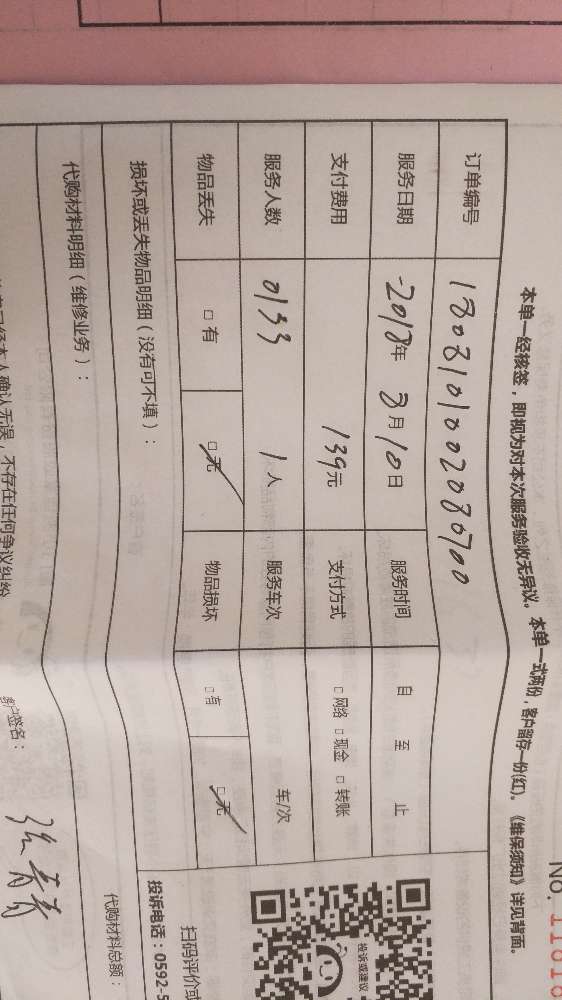 No. 11010
本单一经核签，即视为对本次服务验收无异议。本单一式两份，客户留存一份(红)。《维保须知》详见背面。
订单编号 1808101002080700
服务日期 2018年 8月10日 服务时间 自 至 止
支付费用 139元 支付方式 □ 网络 □ 现金 □ 转账
服务人数 0133 1人 服务车次 车/次
物品丢失 □ 有 □ 无 物品损坏 □ 有 □ 无
损坏或丢失物品明细（没有可不填）：
代购材料明细（维修业务）：
代购材料总额：
投诉或建议
扫码评价或
投诉电话：0592-5
本人确认无误，不存在任何争议纠纷
客户签名：